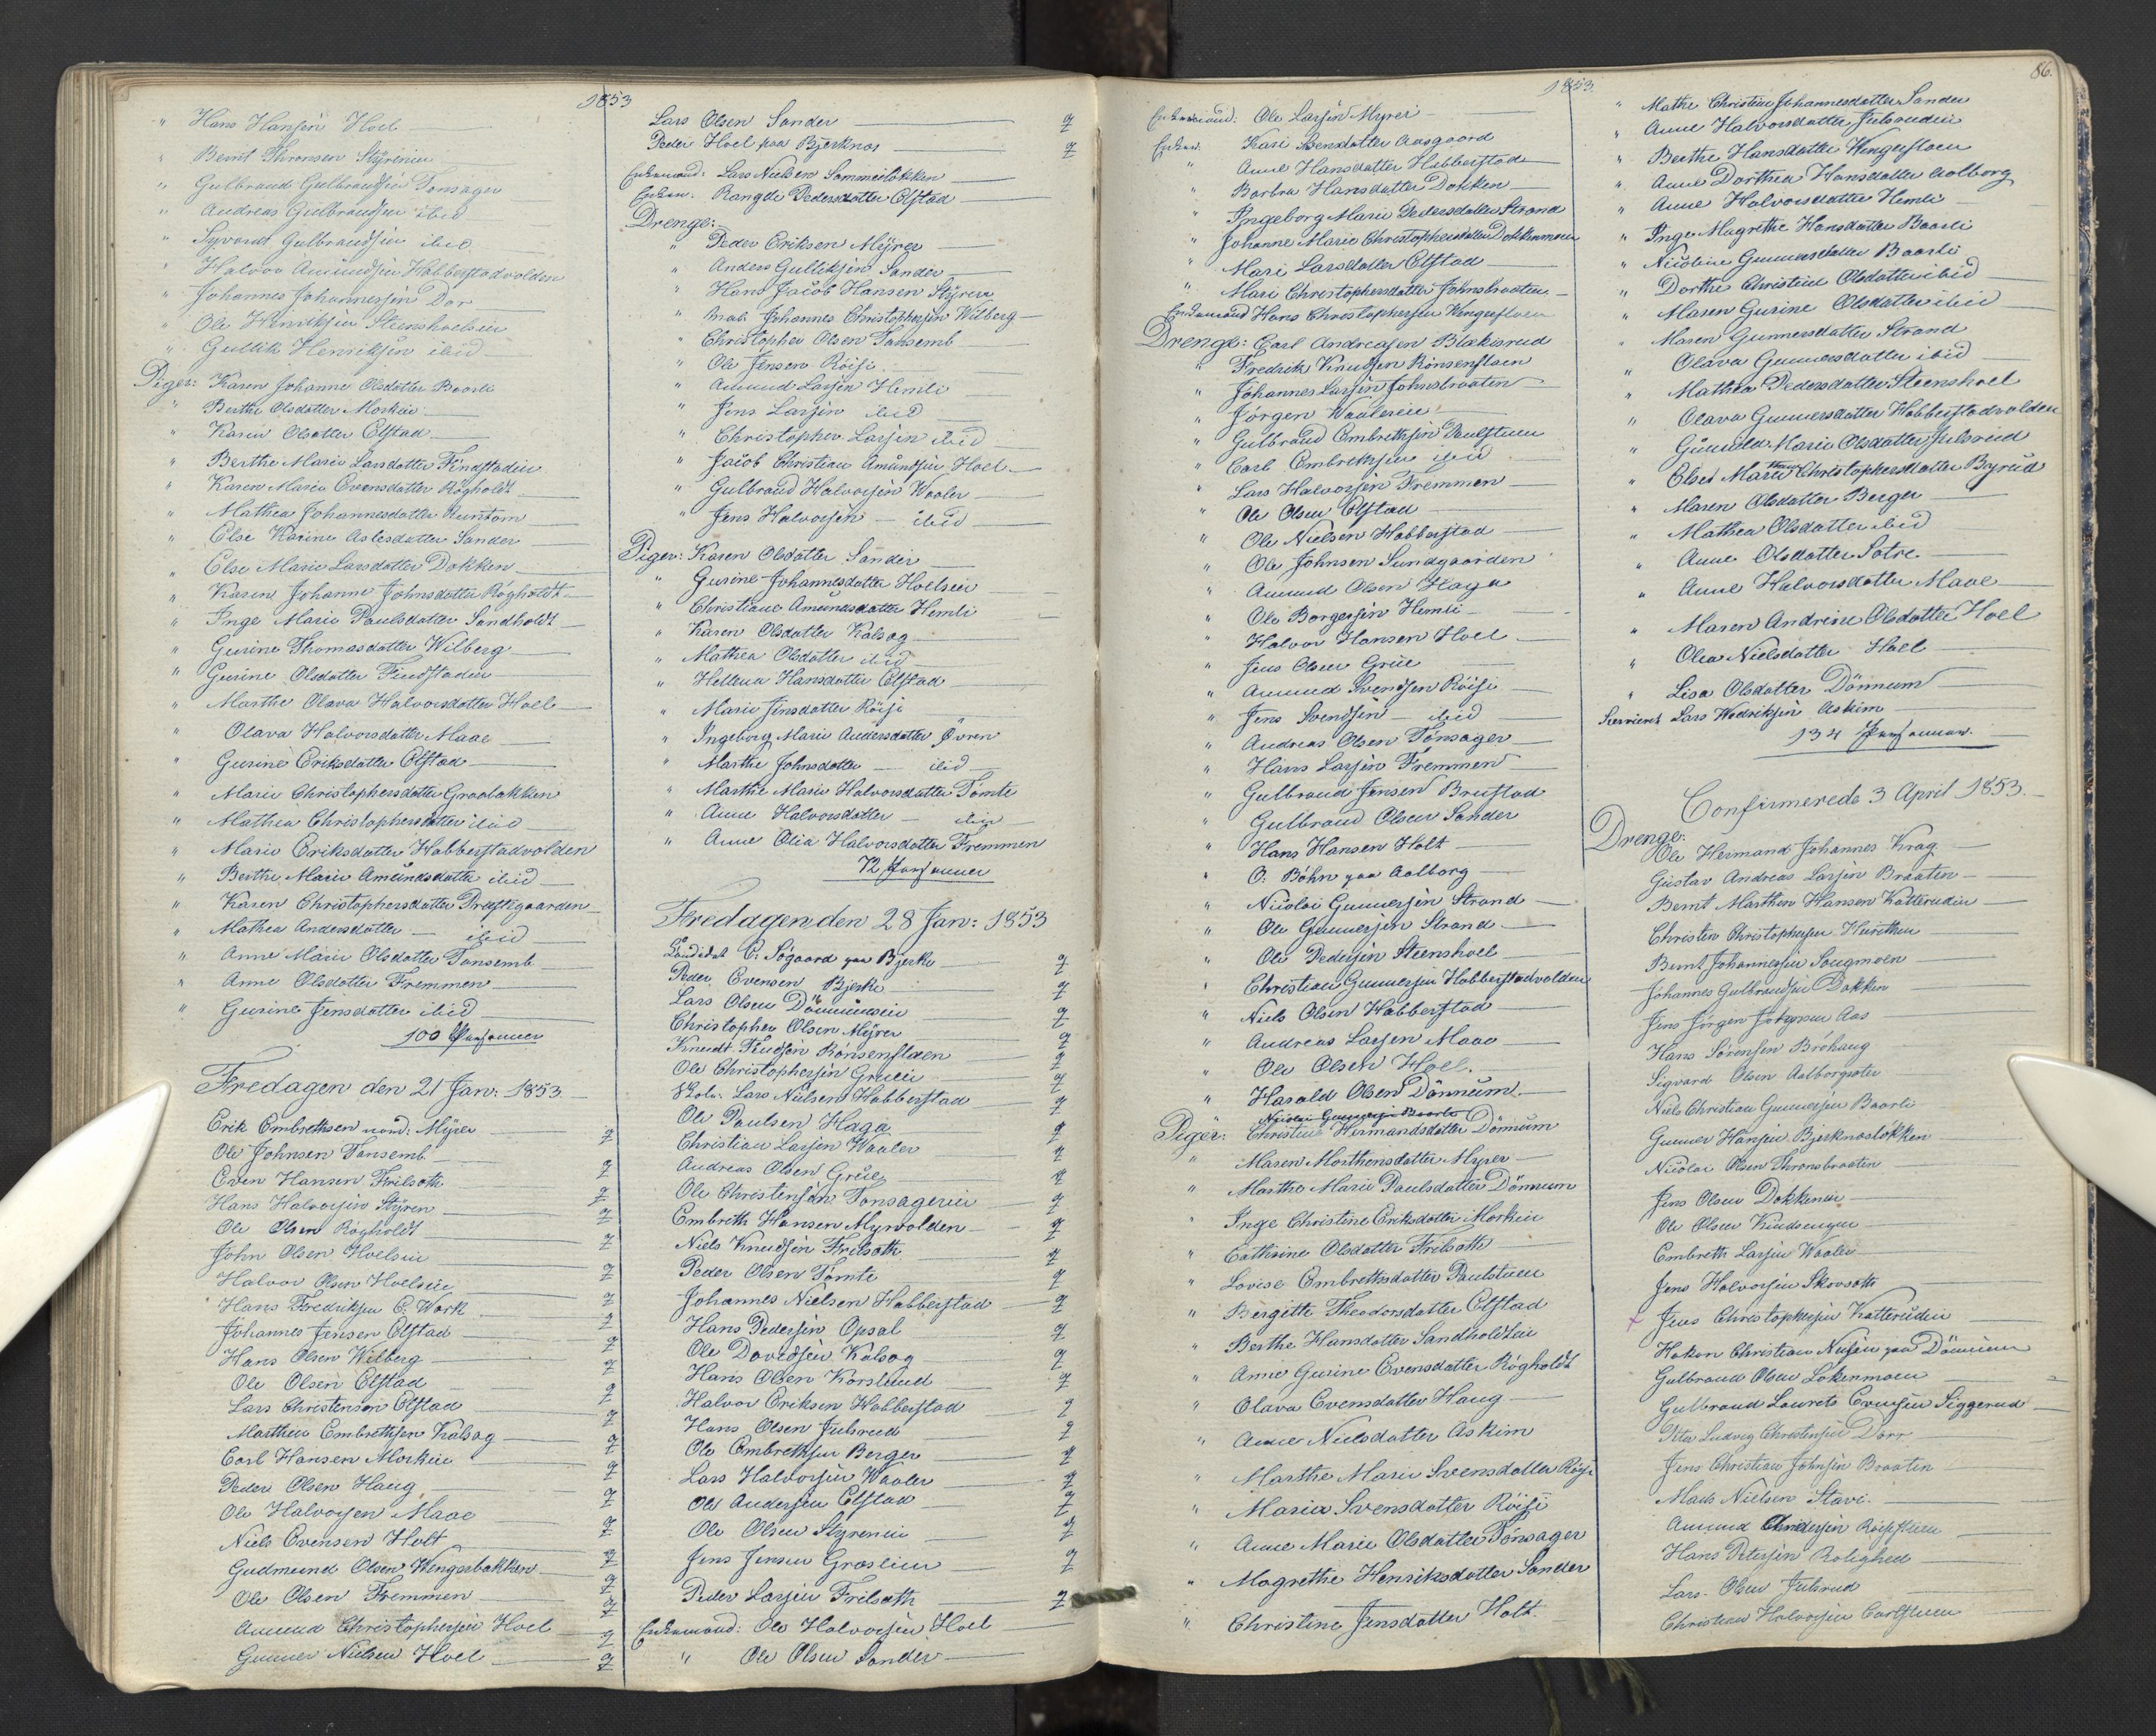 1853
" Hans Hansen Hoel
" Bernt Thronsen Styrerien
" Gulbrand Gulbrandsen Tonsager
" Andreas Gulbrandsen ibid
" Syvord Gulbrandsen ibid
" Halvor Amundsen Habberstadvolden
" Johannes Johannessen Dar
" Ole Henriksen Steenshoelsein
" Gullik Henriksen ibid
Piger: Karen Johanne Olsdatter Baarli
" Berthe Olsdatter Morkin
" Karen Olsdatter Elstad
" Berthe Marie Larsdatter Findstadin
" Karen Marie Evensdatter Rögholdt
" Mathea Johannesdatter Runtom
" Else Karine Aslesdatter Sander
" Else Marie Larsdatter Dokken
" Karen Johanne Johnsdatter Rögholdt
" Inge Marie Paulsdatter Sandholdt
" Gurine Thomasdatter Wilberg
" Gurine Olsdatter Findstadin
" Marthe Olava Halvorsdatter Hoel
" Olava Halvorsdatter Maae
" Gurine Eriksdatter Elstad
" Marie Christophersdatter Graabakken
" Mathea Christophersdatter ibid
" Marie Eriksdatter Habberstadvolden
" Berthe Marie Amundsdatter ibid
" Karen Christophersdatter Præstegaarden
" Mathea Andersdatter — ibid
" Anne Marie Olsdatter Tansemb
" Anne Olsdatter Fremmen
" Gurine Jensdatter ibid
100 Personner
Fredagen den 21 Jan: 1853
Erik Embrethsen nord: Myrer
Ole Johnsen Tansemb
Even Hansen Frilseth
Hans Halvorsen Styren
Ole Olsen Rögholdt
John Olsen Hoelsein
Halvor Olsen Hoelsein
Hans Fredriksen E. Wærk
Johannes Jensen Elstad
Hans Olsen Wilberg
Ole Olsen Elstad
Lars Christensen Elstad
Marthin Embrethsen Kalsag
Carl Hansen Morkin
Peder Olsen Haug
Ole Halvorsen Maae
Niels Evensen Holt
Gudmund Olsen Wengerbakken
Ole Olsen Fremmen
Amund Christophersen Hoel
Gunner Nielsen Hoel
Lars Olsen Sander
Peder Hoel paa Bjerknæs
Enkemand: Lars Nielsen Sommerlökken
Enken. Rangdi Pedersdatter Elstad
Drenge:
" Peder Eriksen Myrer
" Anders Gulliksen Sander
" Hans Jacob Hansen Styren
" Johannes Christophersen Wilberg
" Christopher Olsen Tansemb
" Ole Jensen Röise
" Amund Larsen Himli
" Jens Larsen ibid
" Christopher Larsen ibid
" Jacob Christian Amundsen Hoel
" Gulbrand Halvorsen Waaler
" Jens Halvorsen — ibid
Piger: Karen Olsdatter Sander
" Gurine Johannesdatter Hoelsein
" Christiane Amundsdatter Himli
" Karen Olsdatter Kalsag
" Mathea Olsdatter ibid
" Hellena Hansdatter Elstad
" Marie Jensdatter Röise
" Ingeborg Marie Andersdatter Övren
" Marthe Johnsdatter — ibid
" Marthe Marie Halvorsdatter Tömte
" Anne Halvorsdatter — ibid
" Anne Olia Halvorsdatter Fremmen
72 Personner
Fredagen den 28 Jan: 1853
Candidat C. Sögaard paa Bjerke
Peder Evensen Bjerke
Lars Olsen Dönnumseie
Christopher Olsen Myrer
Knudt Knudsen Rönsenflaen
Ole Christophersen Grueie
Skol: Lars Nielsen Habberstad
Ole Paulsen Haga
Christian Larsen Waaler
Andreas Olsen Grue
Ole Christensen Tonsagereie
Embreth Hansen Myrvolden
Niels Knudsen Frilseth
Peder Olsen Tömte
Johannes Nielsen Habberstad
Hans Pedersen Opsal
Ole Davidsen Kalsag
Hans Olsen Korslund
Halvor Eriksen Habberstad
Hans Olsen Julsrud
Ole Embrethsen Berger
Lars Halvorsen Waaler
Ole Andersen Elstad
Ole Olsen Styrerien
Jens Jensen Græslien
Peder Larsen Frilseth
Enkemand: Ole Halvorsen Hoel
" Ole Olsen Sander
1853.
86.
Enkemand: Ole Larsen Myrer
Enken. Kari Bensdatter Aasgaard
" Anne Hansdatter Habberstad
" Barbra Hansdatter Dokken
" Ingeborg Marie Pedersdatter Strand
" Johanne Marie Christophersdatter Dokkenmoen
" Mari Larsdatter Elstad
" Mari Christophersdatter Johnsbraaten
Enkemand Hans Christophersen Wengerfloen
Drenge: Carl Andreasen Blækisrud
" Fredrik Knudsen Rönsenflaen
" Johannes Larsen Johnsbraaten
" Jörgen Waalereie
" Gulbrand Embrethsen Paulstuen
" Carl Embrethsen ibid
" Lars Halvorsen Fremmen
" Ole Olsen Elstad
" Ole Nielsen Habberstad
" Ole Johnsen Sundgaarden
" Amund Olsen Haga
" Ole Borgersen Himli
" Halvor Hansen Hoel
" Jens Olsen Grue
" Amund Svendsen Röise
" Jens Svendsen — ibid
" Andreas Olsen Tönsager
" Hans Larsen Fremmen
" Gulbrand Jensen Brustad
" Gulbrand Olsen Sander
" Hans Hansen Holt
" O. Böhn paa Aalborg
" Nicolai Gunnersen Strand
" Ole Gunnersen Strand
" Ole Pedersen Steenshoel
" Christian Gunnersen Habberstadvolden
" Niels Olsen Habberstad
" Andreas Larsen Maae
" Ole Olsen Hoel.
" Harald Olsen Dönnum
Nicolai Gunnersen Baarli
Piger: Christine Hermandsdatter Dönnum
" Maren Morthensdatter Myrer
" Marthe Marie Paulsdatter Dönnum
" Inge Christine Eriksdatter Morkin
" Cathrine Olsdatter Frilseth
" Lovise Embrethsdatter Paulstuen
" Birgitte Theodorsdatter Elstad
" Berthe Hansdatter Sandholdtein
" Anne Gurine Evensdatter Rögholdt
" Olava Evensdatter Haug
" Anne Nielsdatter Askim
" Marthe Marie Svensdatter Röise
" Maria Svensdatter Röise
" Anne Marie Olsdatter Tönsager
" Magrethe Henriksdatter Sander
" Christine Jensdatter Holt
" Mathe Christine Johannesdatter Sander
" Anne Halvorsdatter Julsrudin
" Berthe Hansdatter Wengerfloen
" Anne Dorthea Hansdatter Aalborg
" Anne Halvorsdatter Himli
" Inge Magrethe Hansdatter Baarli
" Nicoline Gunnersdatter Baarli
" Dorthe Christine Olsdatter ibid
" Maren Gurine Olsdatter ibid
" Maren Gunnersdatter Strand
" Olava Gunnersdatter ibid
" Mathea Pedersdatter Steenshoel
" Olava Gunnersdatter Habberstadvolden
" Gunnild Marie Olsdatter Julsrud
" Else Marthe Christophersdatter Byrud
" Maren Olsdatter Berger
" Mathea Olsdatter ibid
" Anne Olsdatter Sætre
" Anne Halvorsdatter Maae
" Maren Andrine Olsdatter Hoel
" Olea Nielsdatter Hoel
" Lisa Olsdatter Dönnum
Lars Hedriksen Askim
134 Personner
Confirmerede 3 April 1853.
Drenge:
Ole Hermand Johannes Krag
Gustav Andreas Larsen Braaten
Bernt Marthin Hansen Katterudin
Christen Christophersen
Bernt Johannessen Sougmoen
Johannes Gulbrandsen Dokken
Jens Jörgen Johnsen Aas
Hans Sörensen Bröhaug
Sigvard Olsen Aalborgsæter
Niels Christian Gunnersen Baarli
Gunner Hansen Bjerknæslökken
Nicolai Olsen Thronsbraaten
Jens Olsen Dokkenein
Ole Olsen Knudsengen
Embreth Larsen Waaler
Jens Halvorsen Skovseth
x Jens Christophersen Katterudin
Hakon Christian Nilsen paa Dönnum
Gulbrand Olsen Lökenmoen
Gulbrand Laurets Evensen Siggerud
Ludvig Christensen Dorr
Jens Christian Johnsen Braaten
Mads Nielsen Stavi
Amund Andersen
Hans Petersen Rolighed
Lars Olsen Julsrud
Christian Halvorsen Carlstuen